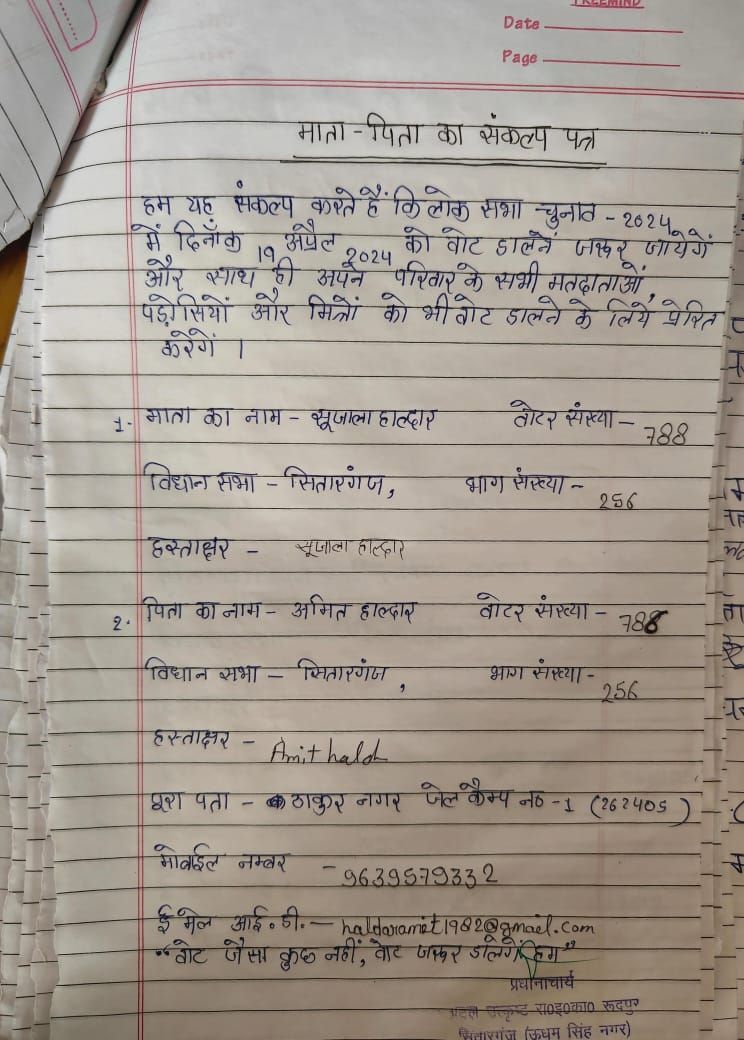 Date
Page
माता-पिता का संकल्प पत्र
हम यह संकल्प करते हैं कि लोक सभा चुनाव - 2024
में दिनाँक 19 अप्रैल 2024 को वोट डालनें जरूर जायेगें
और साथ ही अपने परिवार के सभी मतदाताओं,
पड़ोसियों और मित्रों को भी वोट डालने के लिये प्रेरित
करेगें ।
1. माता का नाम - सूजाला हाल्दार वोटर संख्या - 788
विधान सभा - सितारगंज, भाग संख्या - 256
हस्ताक्षर - सूजाला हाल्दार
2. पिता का नाम - अमित हाल्दार वोटर संख्या - 788
विधान सभा - सितारगंज, भाग संख्या - 256
हस्ताक्षर - Amit hald
पूरा पता - ठाकुर नगर जेल कैम्प न० -1 (262405)
मोबाईल नम्बर - 9639579332
ई मेल आई.डी. - haldaramit1982@gmail.com
“वोट जैसा कुछ नहीं, वोट जरूर डालेगें हम”
प्रधानाचार्य
अटल उत्कृष्ट रा०इ०का० रूदपुर
सितारगंज (ऊधम सिंह नगर)